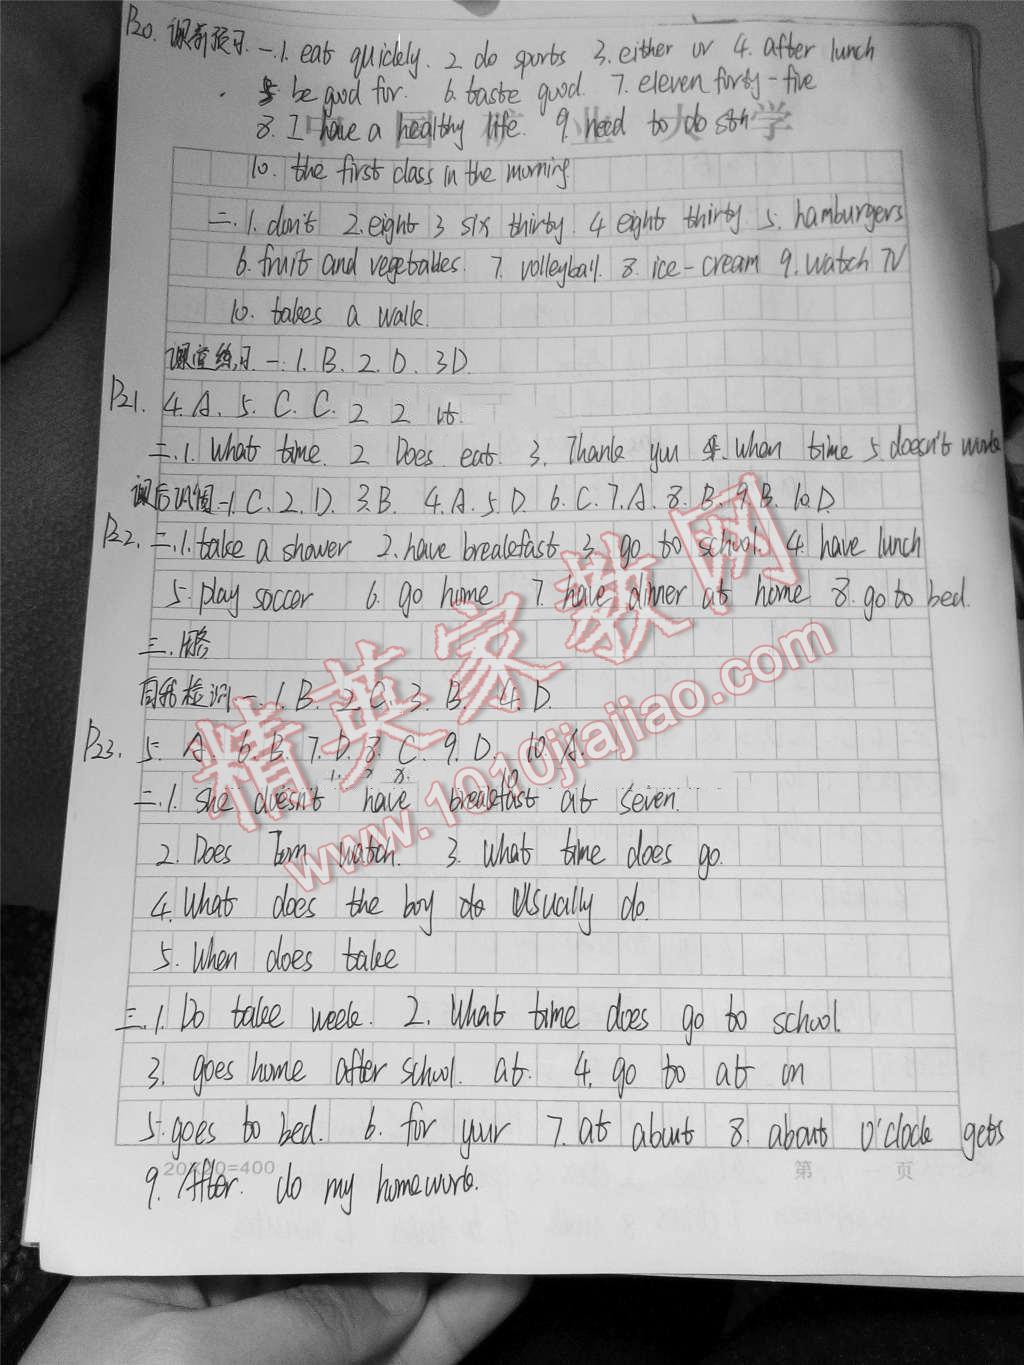 P20. 课前预习. 一.1. eat quickly. 2. do sports 3. either or 4. after lunch
5 be good for. 6. taste good. 7. eleven forty-five
中国矿业大学
8. I have a healthy life. 9. need to do sth
10. the first class in the morning
二. 1. don't 2. eight 3 six thirty. 4 eight thirty. 5. hamburgers
6. fruit and vegetables. 7. volleyball. 8. ice-cream 9. watch TV
10. takes a walk.
课堂练习 一. 1. B. 2. D. 3 D.
P21. 4. A. 5. C. C. 2 2 it.
二.1. What time. 2 Does eat. 3. Thank you 4. When time 5. doesn't work
课后巩固 一1. C. 2. D. 3. B. 4. A. 5. D. 6. C. 7. A. 8. B. 9. B. 10. D.
P22. 二.1. take a shower 2. have breakfast 3. go to school. 4. have lunch
5. play soccer 6. go home. 7. have dinner at home 8. go to bed.
三. 略
自我检测 一. 1. B. 2 C. 3. B. 4. D.
P23. 5. A. 6. B. 7. D. 8. C. 9. D. 10. A.
二.1. She doesn't have breakfast at seven.
2. Does Tom watch. 3. What time does go.
4. What does the boy do usually do.
5. When does take
三.1. Do take week. 2. What time does go to school.
3. goes home after school. at. 4. go to at on
5. goes to bed. 6. for your 7. at about 8. about o'clock gets
20×20=400 第 页
9. After. do my homework.
精英家教网
www.1010jiajiao.com